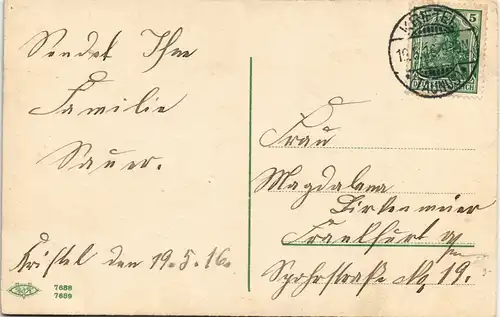 Sendet Ihre
Familie
Sauer.
Kristel den 19.5.16.
7688
7689
KRIFTEL
(TAUNUS)
5
Frau
Magdalena
Birkenmeier
Frankfurt a/m
Spohrstraße No 19.